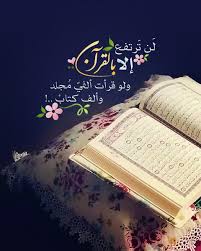 لَن تَرتفع
إلا بالقرآن
ولو قرأت ألفيّ مُجلد
وألف كتاب ..!